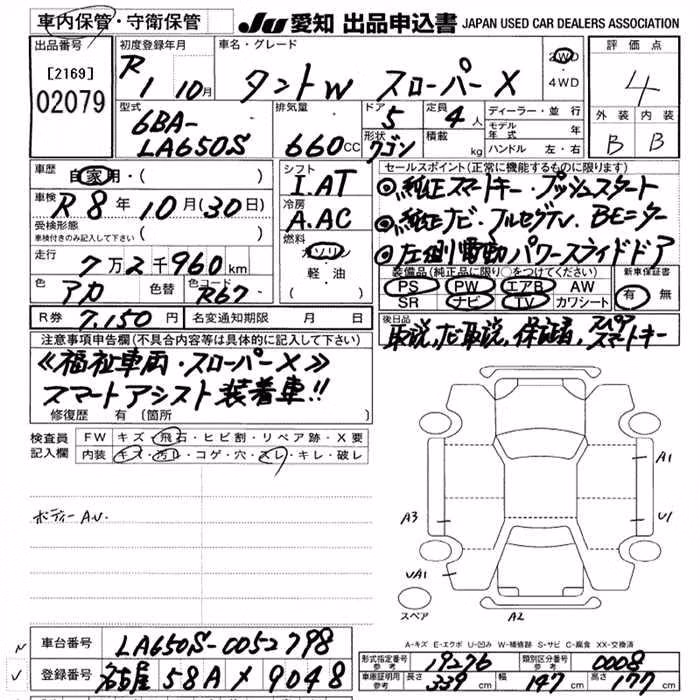 車内保管・守衛保管
JU 愛知 出品申込書 JAPAN USED CAR DEALERS ASSOCIATION
出品番号
[2169]
02079
初度登録年月
R 1 10月
車名・グレード
タントW スローパーX
2WD・4WD
評価点
4
外装 内装
B B
型式
6BA-
LA650S
排気量
660cc
ドア
5
定員
4人
形状
ワゴン
積載
kg
ディーラー・並行
モデル年式 年
ハンドル 左・右
車歴
自家用・( )
車検
R 8年10月(30日)
受検形態
車検付きのみ記入して下さい ( )
走行
7万2千960km
色
アカ
色替
色コード
R67
R券
7,150円
名変通知期限 月 日
シフト
I.AT
冷房
A.AC
燃料
ガソリン
軽・油
セールスポイント(正常に機能するものに限ります)
◎純正スマートキー・プッシュスタート
◎純正ナビ・フルセグTV. BEニター
◎左側電動パワースライドドア
装備品(純正品に限り○をつけてください)
PS PW エアB AW
SR ナビ TV カワシート
新車保証書
有 無
後日品
取説,ナビ取説,保証書,スペアスマートキー
注意事項申告欄(不具合内容等は具体的に記入して下さい)
≪福祉車両・スローパーX≫
スマートアシスト装着車!!
修復歴 有 (箇所 )
検査員記入欄
FW キズ・飛石・ヒビ割・リペア跡・X要
内装 キズ・汚レ・コゲ・穴・スレ・キレ・破レ
ボディーA.U.
A1
A3
U1
UA1
スペア
A2
A-キズ E-エクボ U-凹み W-補修跡 S-サビ C-腐食 XX-交換済
車台番号
LA650S-0052798
登録番号
名古屋 58A メ 9048
形式指定番号 参考
19276
類別区分番号 参考
0008
車庫証明用 参考
長さ 339cm 幅 147cm 高さ 177cm